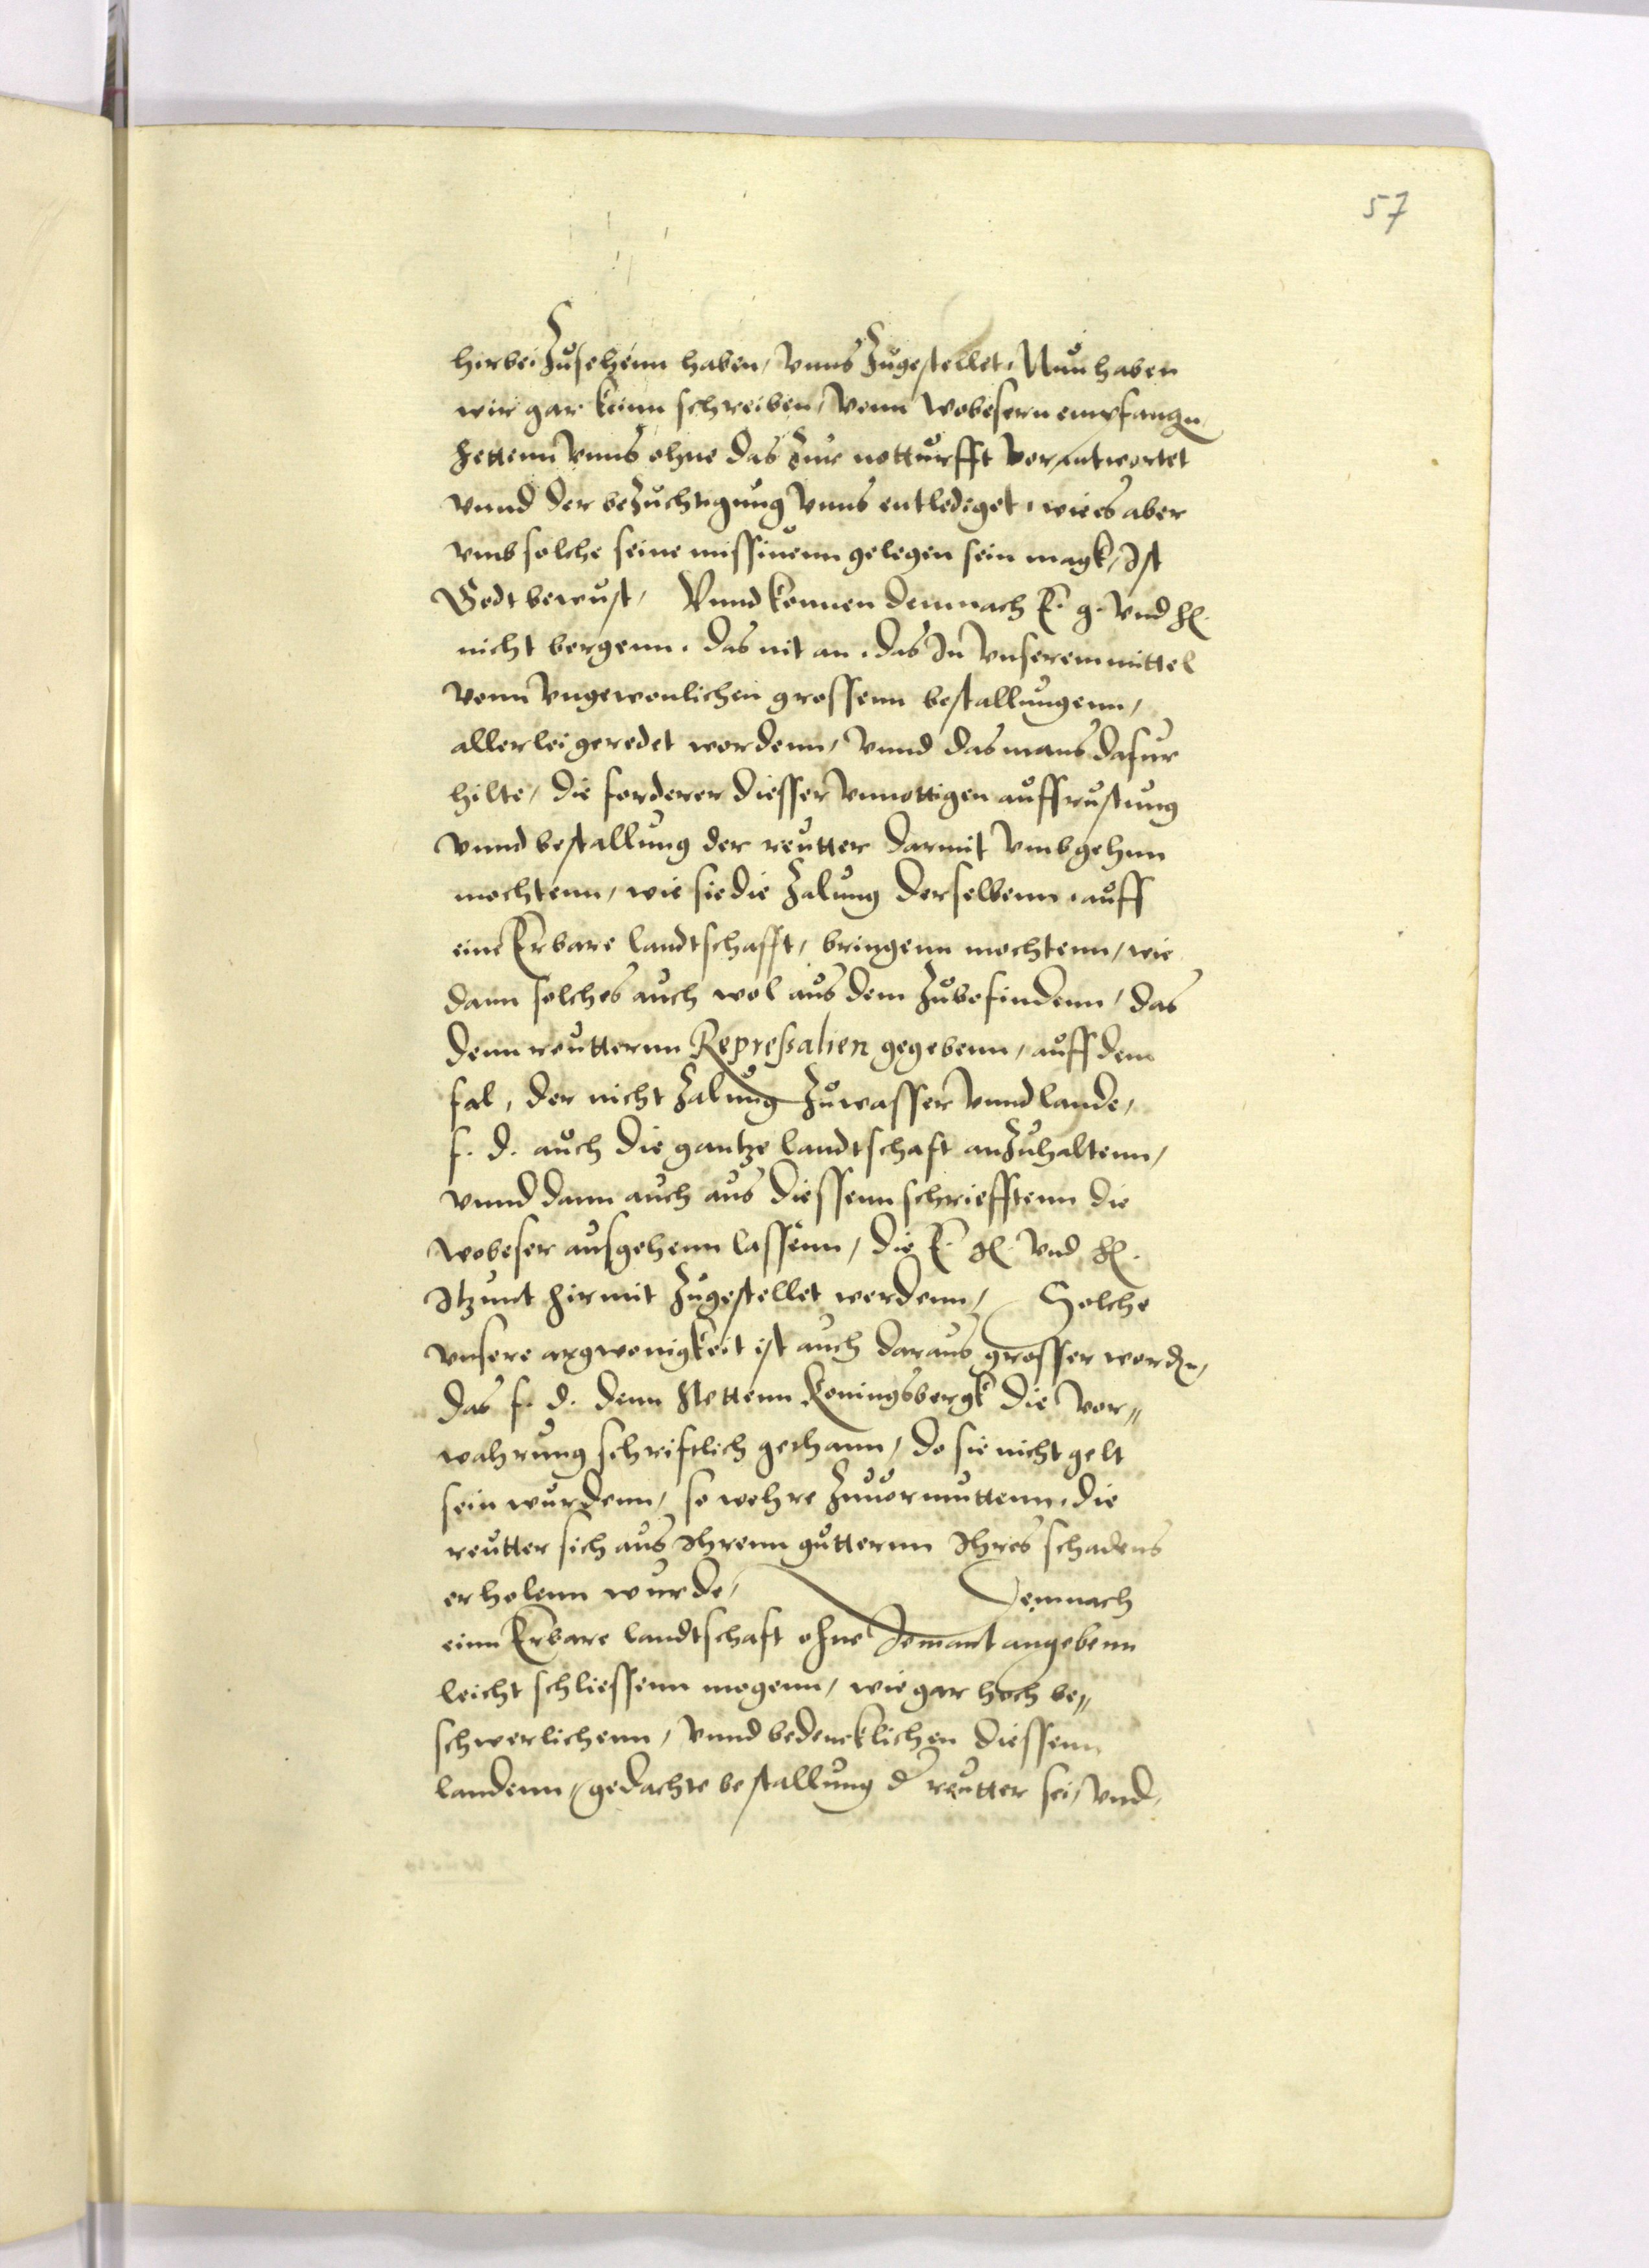 57
hirbei Zusehenn haben, vnns Zugestellet, Nun haben
wir gar keinn schreiben, vonn Wobesern empfangn
hettenn vnns ohne das Zur notturfft verantwortet
vnnd der beZuchtigung vnns entlediget, wie es aber
vmb solche seine missiuenn gelegen sein magk, Ist
Godt bewust, Vnnd konnen demnach E. g. vnd h.
nicht bergenn, das nit an, das In vnserem mittel
vonn vngewonlichen grossenn bestallungenn,
allerlei geredet wordenn, vnnd das mans dafur
hilte, die forderer diesser vnnottigen auffrustung
vnnd bestallung der reutter darmit vmbgehnn
mochtenn, wie sie die Zalung derselbenn, auff
eine Erbare landtschafft, bringenn mochtenn, wie
dann solches auch wol aus dem Zubefindenn, das
denn reutternn Represalien gegebenn, auff dem
fal, der nicht Zalung Zu wasser vnnd lande,
f. d. auch die gantze landtschaft anZuhaltenn,
vnnd dann auch aus diessenn schriefftenn die
Wobeser ausgehenn lassenn, die E. g. vnd h.
Itzunt hirmit Zugestellet werdenn, Solche
vnsere argwonigkeit ist auch daraus grosser wordn,
das f. d. denn Stettenn Koningsbergk die vor„
wahrung schriftlich gethann, do sie nicht gelt
sein wurdenn, so wehre Zuuormuttenn, die
reutter sich aus Ihrenn gutternn Ihres schadens
erholenn wurde, Demnach
einn Erbare landtschaft ohne Jemant angebenn
leicht schliessenn mogenn, wie gar hoch be„
schwerlichenn, vnnd bedencklichen diessenn
landenn, gedachte bestallung d reutter sei, vnd